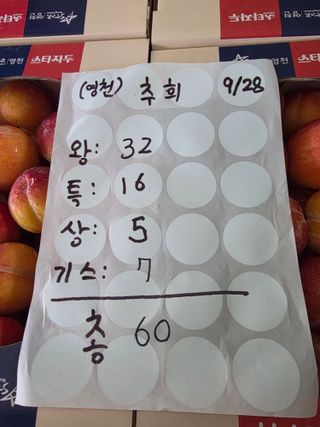 스타자두
스타자두
(영천) 추희 9/28
왕: 32
특: 16
상: 5
기스: 7
총 60